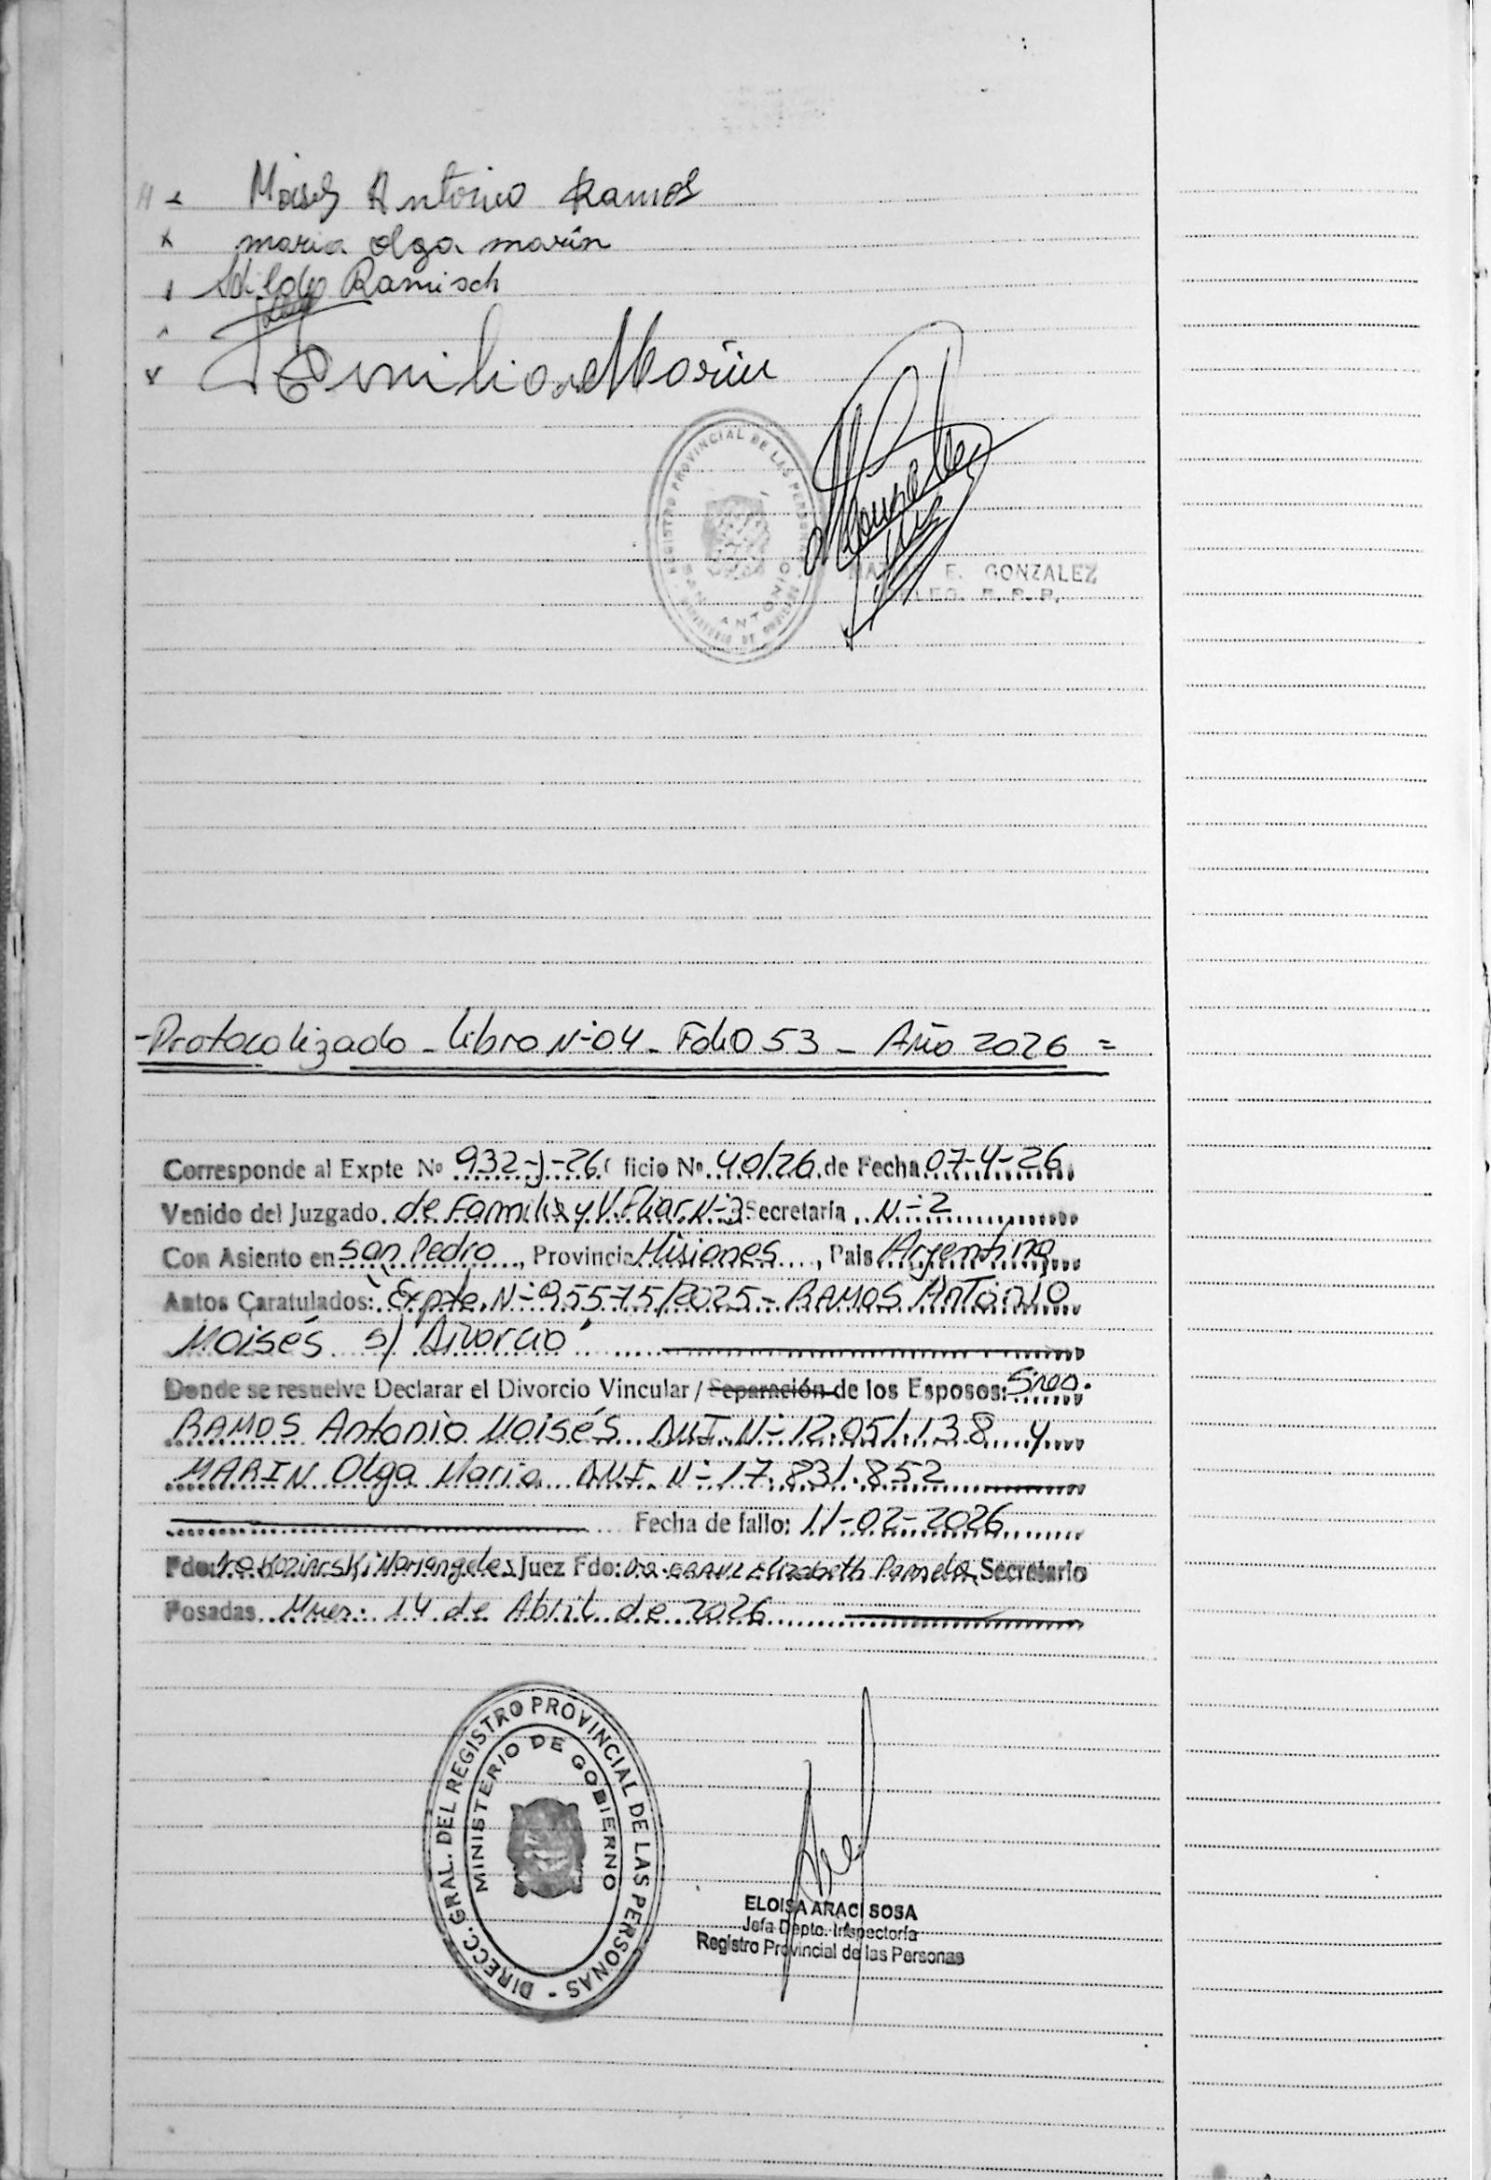 Moises Antonio Ramos
maria olga marin
Hilda Ramisch
Emiliano Marin
REGISTRO PROVINCIAL DE LAS PERSONAS
SAN ANTONIO
MINISTERIO DE GOBIERNO
E. GONZALEZ
DELEG. R. P. P.
-Protocolizado - Libro N-04 - Folio 53 - Año 2026 =
Corresponde al Expte Nº 932-J-26 ficio Nº 40/26 de Fecha 07-4-26
Venido del Juzgado de Familia y V. Fliar N-3 Secretaría N-2
Con Asiento en San Pedro, Provincia Misiones, País Argentina
Autos Caratulados: "Expte. N-95575/2025 - RAMOS Antonio
Moisés s/ Divorcio"
Donde se resuelve Declarar el Divorcio Vincular / Separación de los Esposos: Sres.
RAMOS Antonio Moisés DNI. N-12.051.138 y
MARIN Olga Maria DNI. N-17.831.852
Fecha de fallo: 11-02-2026
Fdo: Dra. Koziarski Mariangeles Juez Fdo: Dra. Elizabeth Pamela Secretario
Posadas Mnes: 14 de Abril de 2026
DIRECC. GRAL. DEL REGISTRO PROVINCIAL DE LAS PERSONAS -
MINISTERIO DE GOBIERNO
ELOISA ARACI SOSA
Jefa Depto. Inspectoría
Registro Provincial de las Personas